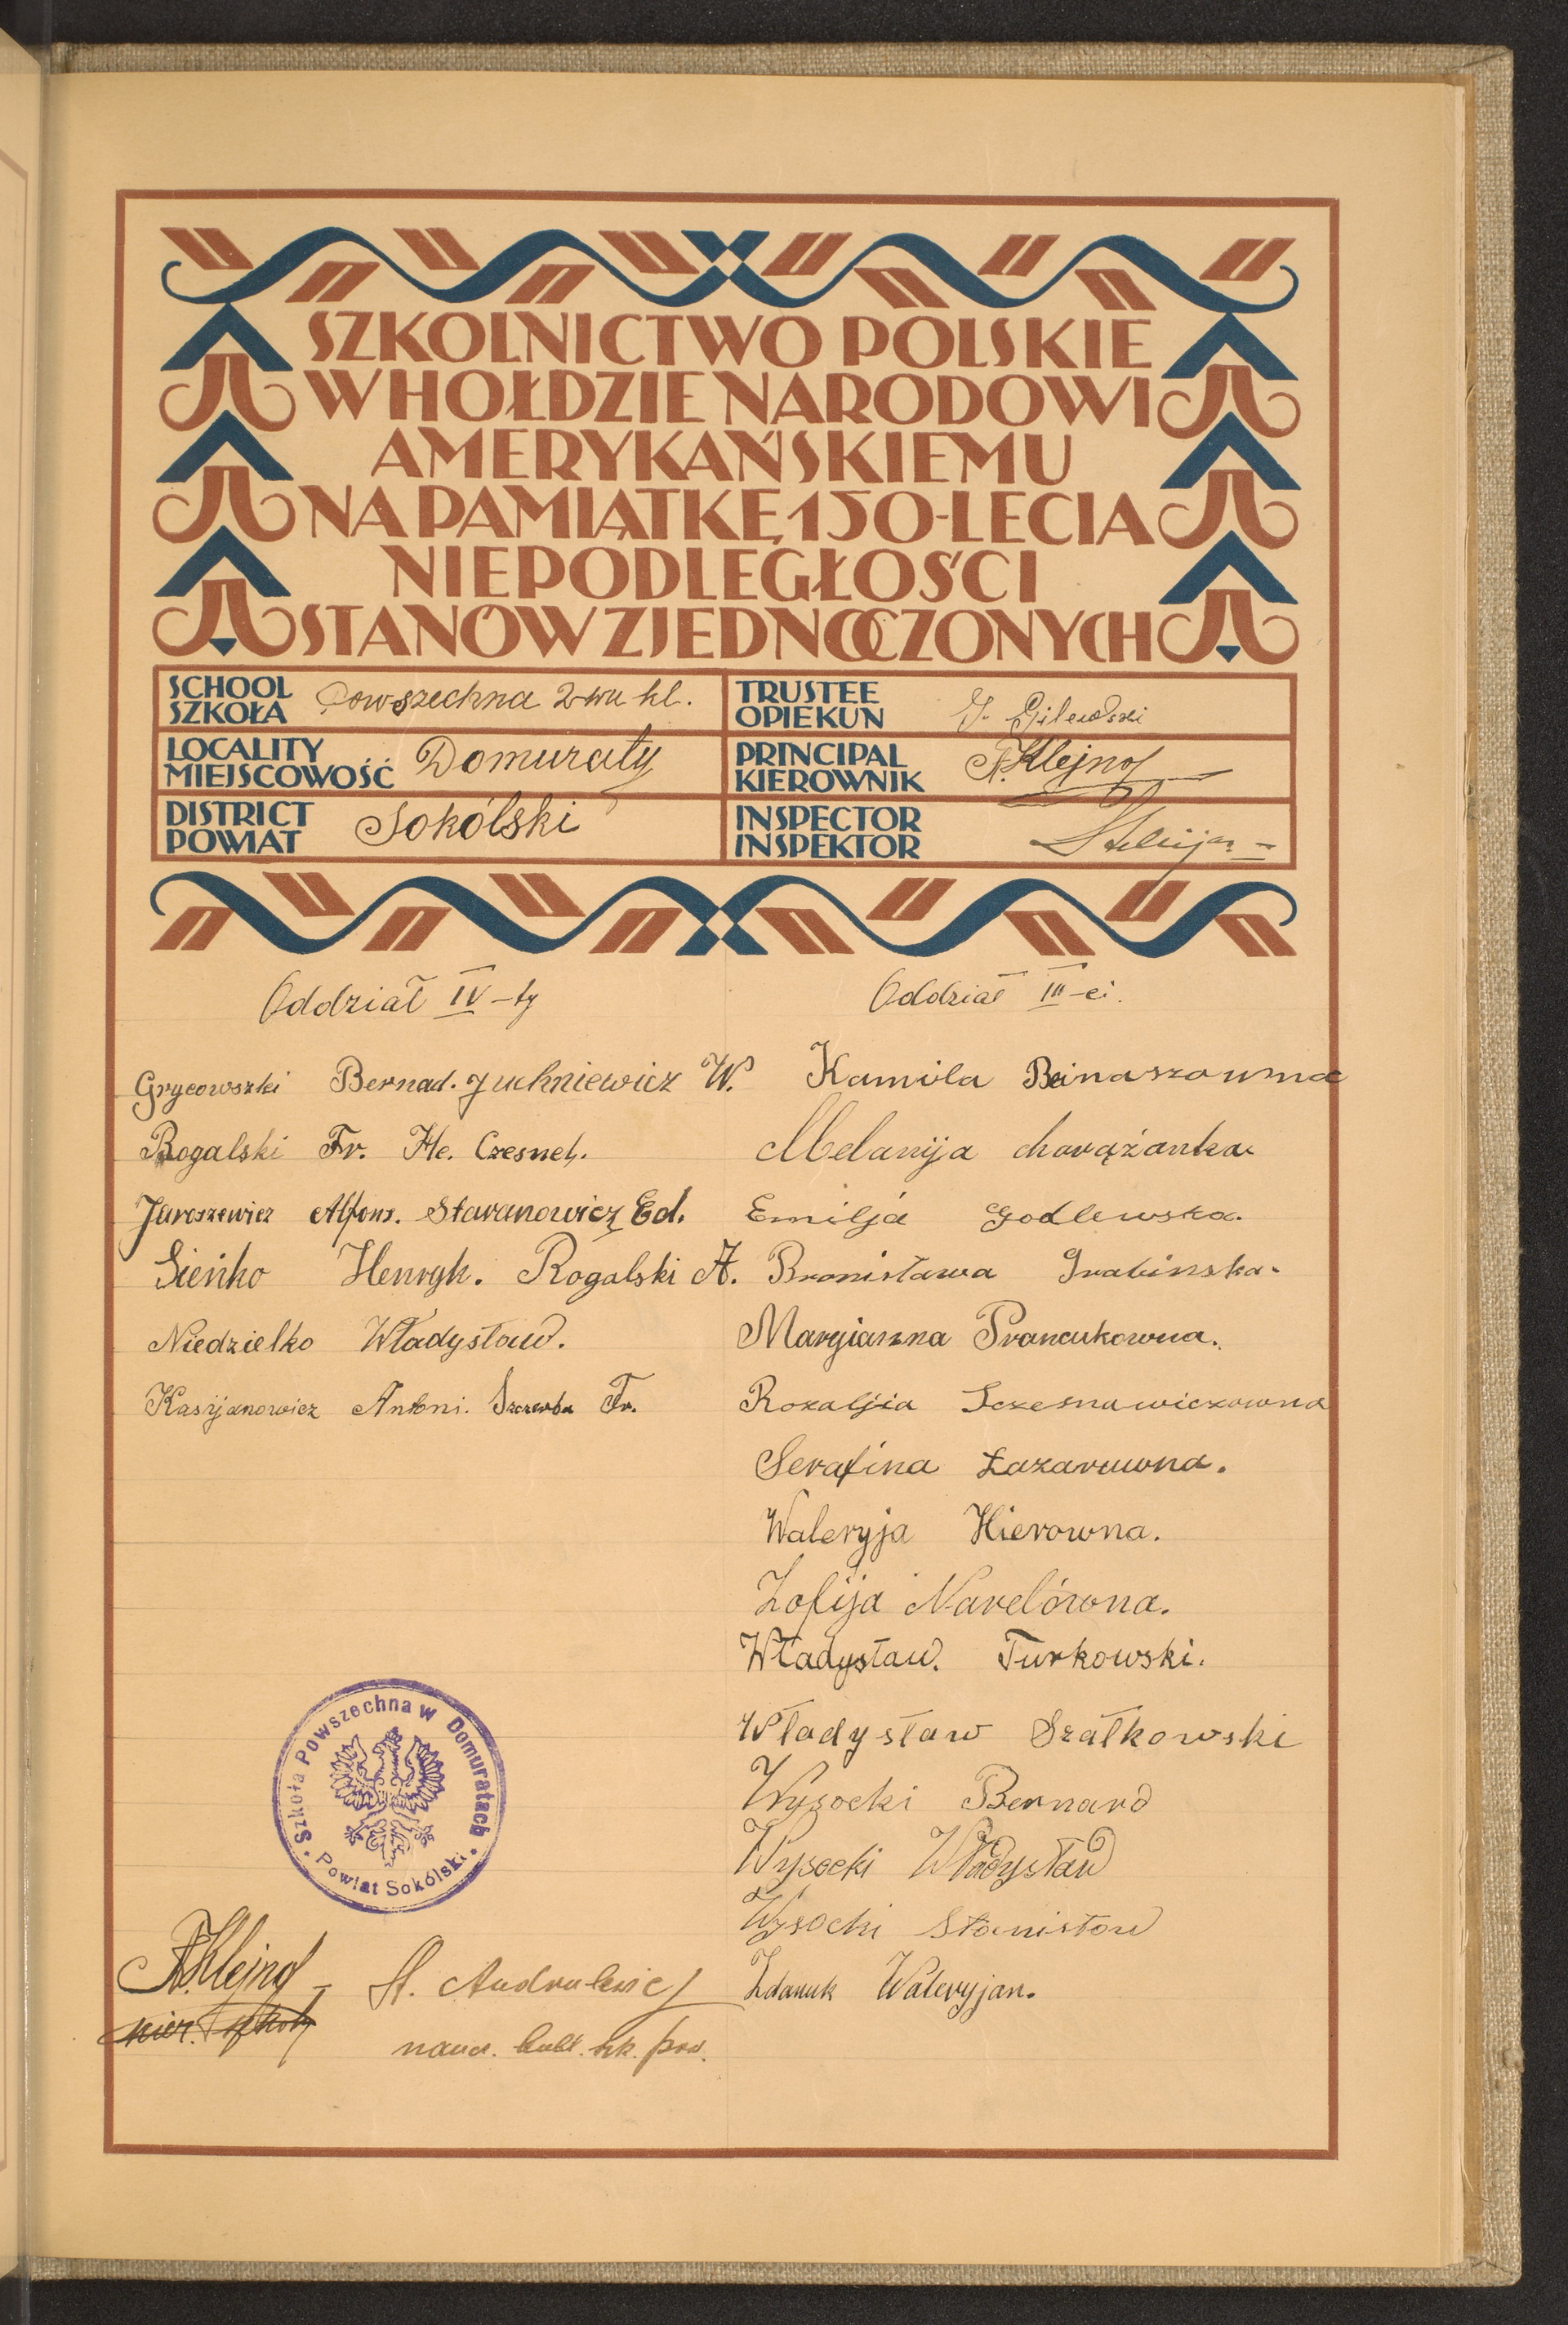 SZKOLNICTWO POLSKIE
W HOŁDZIE NARODOWI
AMERYKAŃSKIEMU
NA PAMIĄTKĘ 150-LECIA
NIEPODLEGŁOŚCI
STANÓW ZJEDNOCZONYCH
SCHOOL
SZKOŁA
Powszechna 2-wu kl.
TRUSTEE
OPIEKUN
J. Gilewski
LOCALITY
MIEJSCOWOŚĆ
Domuraty
PRINCIPAL
KIEROWNIK
A. Klejnot
DISTRICT
POWIAT
Sokólski
INSPECTOR
INSPEKTOR
Oddział IV-ty
Grycowszki Bernad. Juchniewicz W.
Rogalski Fr. He. Czesnel.
Jaroszewicz Alfons. Staranowicz Ed.
Sieńko Henryk. Rogalski A.
Niedzielko Władysław.
Kasyjanowicz Antoni. Szczerba Fr.
Oddział III-ci.
Kamila Beinaszowna
Melanija chorążanka
Emilja Godlewska.
Bronisława Grabinska.
Maryianna Prancukowna.
Rozaljia Sczesnawiczowna
Serafina Łazaruwna.
Waleryja Hierowna.
Zofija Narelówna.
Władysław. Turkowski.
Władysław Szałkowski
Wysocki Bernard
Wysocki Władysław
Wysocki Stanisław
Zdanuk Waleryjan.
Szkoła Powszechna w Domuratach
Powiat Sokólski
A. Klejnot
kier. szkoły
St. Andrulewicz
naucz. szk. pow.